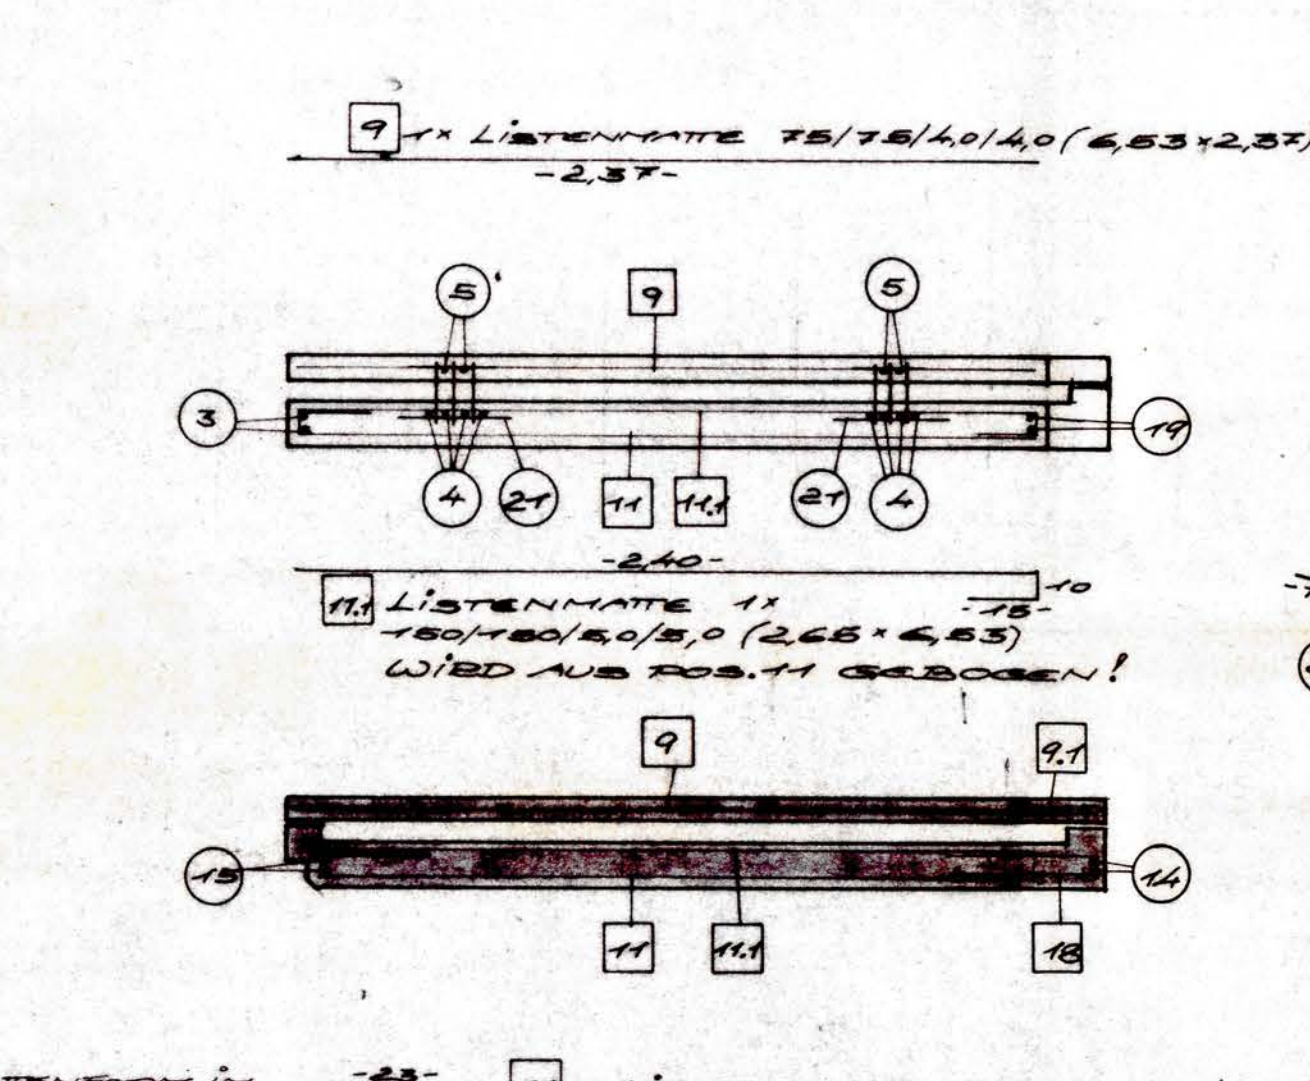 9 1x LISTENMATTE 75/75/4,0/4,0 (6,53x2,37)
-2,37-
5 9 5
3 19
4 21 11 11.1 21 4
-2,40-
10
11.1 LISTENMATTE 1x
-15-
150/150/5,0/5,0 (2,65 x 6,53)
WIRD AUS POS.11 GEBOGEN!
9 9.1
15 14
11 11.1 18
-23-